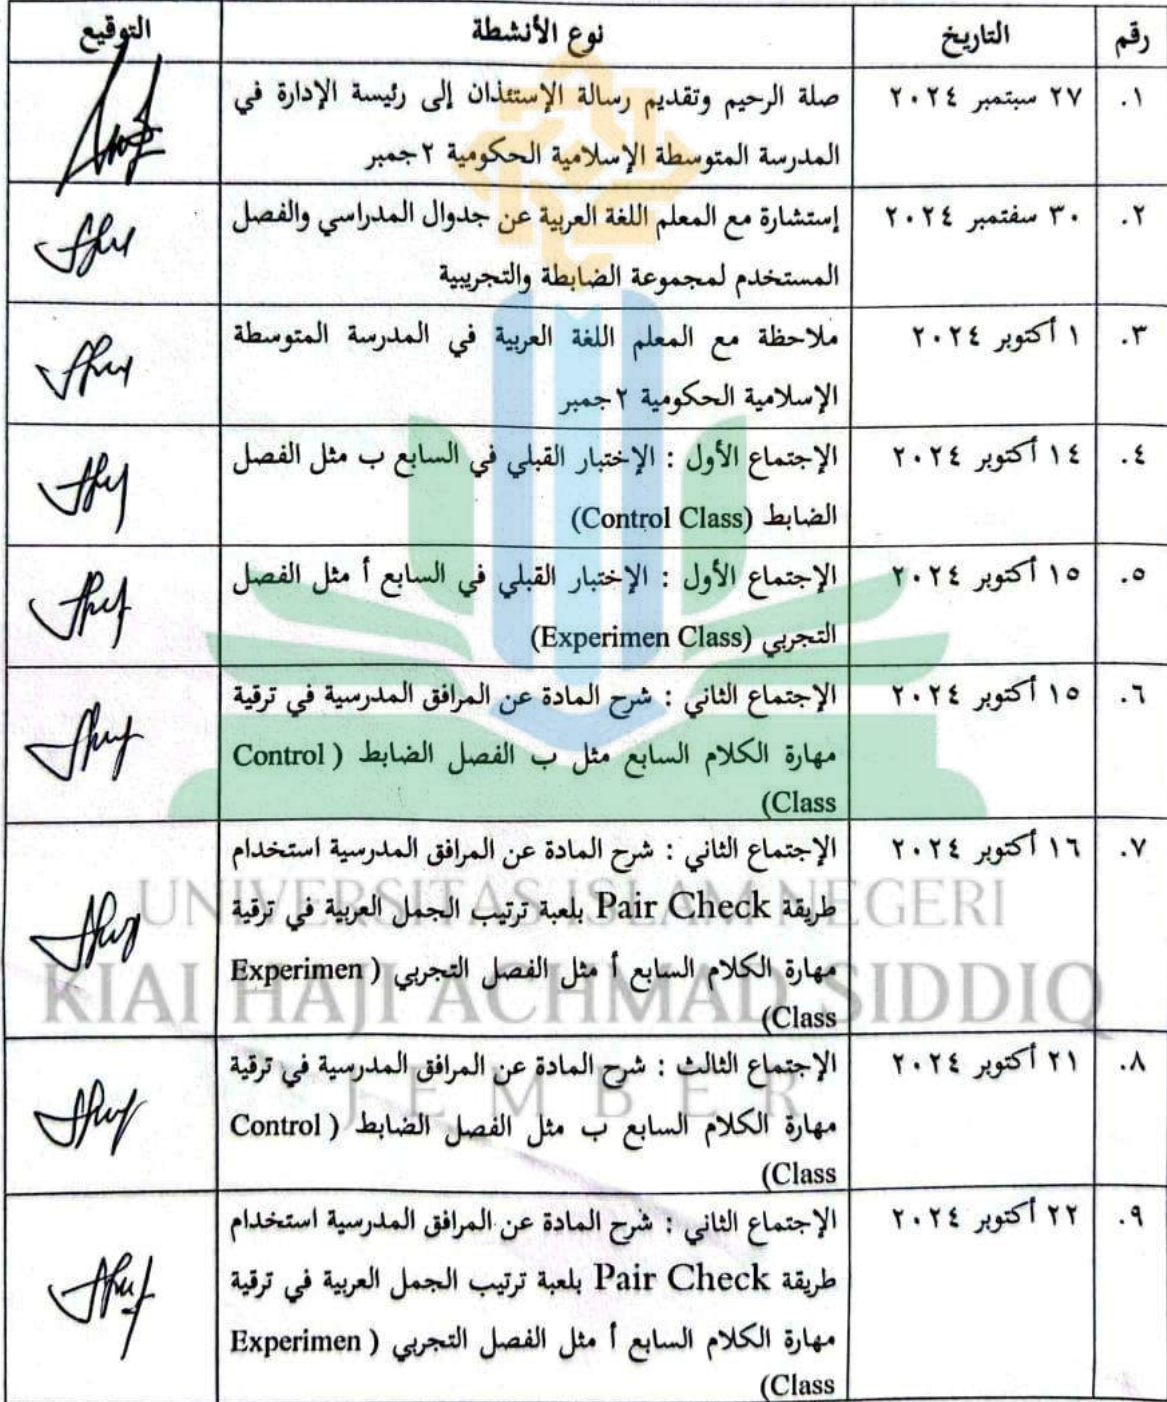 رقم التاريخ نوع الأنشطة التوقيع
١. ٢٧ سبتمبر ٢٠٢٤ صلة الرحيم وتقديم رسالة الإستئذان إلى رئيسة الإدارة في
المدرسة المتوسطة الإسلامية الحكومية ٢ جمبر
٢. ٣٠ سفتمبر ٢٠٢٤ إستشارة مع المعلم اللغة العربية عن جدوال المدراسي والفصل
المستخدم لمجموعة الضابطة والتجريبية
٣. ١ أكتوبر ٢٠٢٤ ملاحظة مع المعلم اللغة العربية في المدرسة المتوسطة
الإسلامية الحكومية ٢ جمبر
٤. ١٤ أكتوبر ٢٠٢٤ الإجتماع الأول : الإختبار القبلي في السابع ب مثل الفصل
الضابط (Control Class)
٥. ١٥ أكتوبر ٢٠٢٤ الإجتماع الأول : الإختبار القبلي في السابع أ مثل الفصل
التجربي (Experimen Class)
٦. ١٥ أكتوبر ٢٠٢٤ الإجتماع الثاني : شرح المادة عن المرافق المدرسية في ترقية
مهارة الكلام السابع مثل ب الفصل الضابط (Control
Class)
٧. ١٦ أكتوبر ٢٠٢٤ الإجتماع الثاني : شرح المادة عن المرافق المدرسية استخدام
طريقة Pair Check بلعبة ترتيب الجمل العربية في ترقية
مهارة الكلام السابع أ مثل الفصل التجربي (Experimen
Class)
٨. ٢١ أكتوبر ٢٠٢٤ الإجتماع الثالث : شرح المادة عن المرافق المدرسية في ترقية
مهارة الكلام السابع ب مثل الفصل الضابط (Control
Class)
٩. ٢٢ أكتوبر ٢٠٢٤ الإجتماع الثاني : شرح المادة عن المرافق المدرسية استخدام
طريقة Pair Check بلعبة ترتيب الجمل العربية في ترقية
مهارة الكلام السابع أ مثل الفصل التجربي (Experimen
Class)
UNIVERSITAS ISLAM NEGERI
KIAI HAJI ACHMAD SIDDIQ
JEMBER